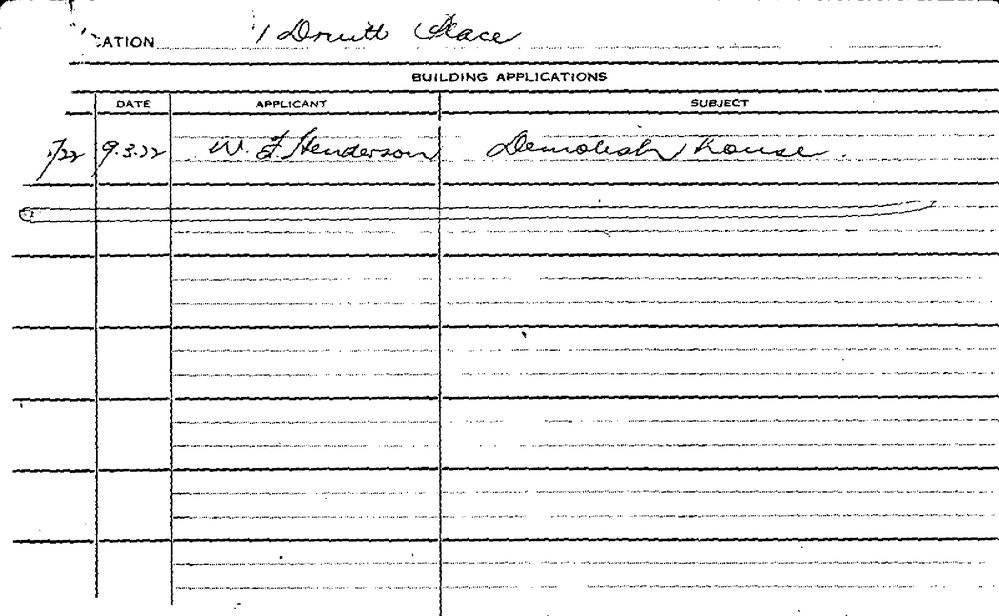 CATION 1 Druitt Place
BUILDING APPLICATIONS
DATE APPLICANT SUBJECT
/22 9.3.22 W. F. Henderson Demolish house.